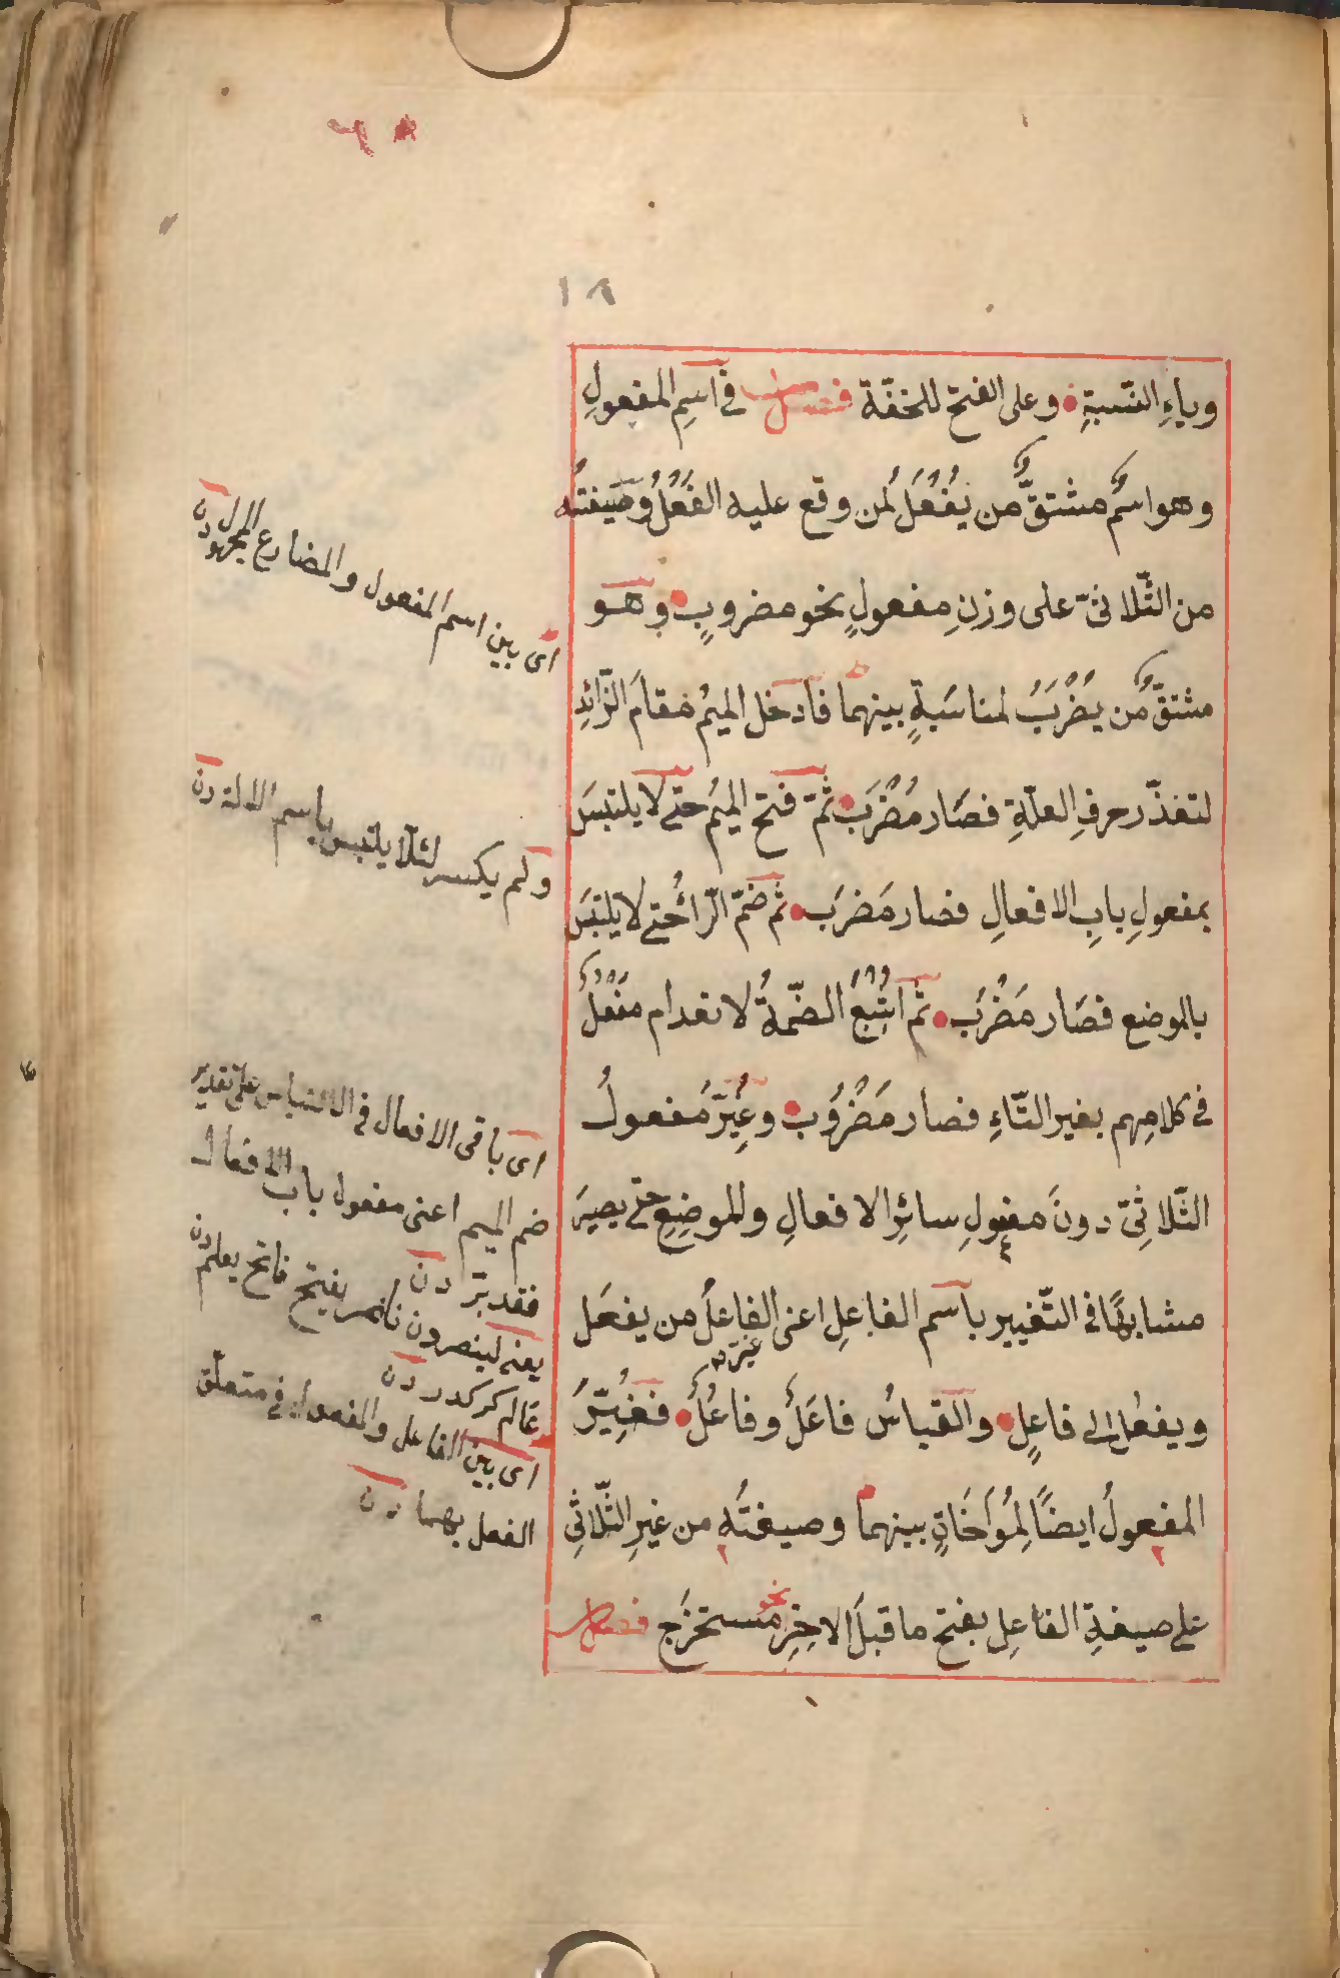 وياءِ النّسبةِ وعلى الفتح للخفّة فصل فى اسمِ المفعولِ
وهو اسمٌ مشتقٌّ من يُفْعَلُ لمن وقع عليه الفعلُ وصيغتُه
من الثّلاثىّ على وزنِ مفعولٍ نحو مضروبٍ وهو
مشتقٌّ من يُضْرَبُ لمناسَبةٍ بينهما فادخل الميمُ مقامَ الزّائدِ
لتعذّر حرفِ العلّةِ فصَار مُضْرَب ثمّ فتح الميمُ حتى لا يلتبسَ
بمفعولِ بابِ الافعالِ فصار مَضرَب ثم ضمّ الرّاءُ حتى لا يلتبسَ
بالموضع فصَار مَضْرُب ثم اشبعُ الضّمةُ لانعدام مَفْعُلٌ
فى كلامِهم بغير التّاءِ فصار مَضْرُوب وغُيِّرَ مَفعولُ
الثّلاثىّ دونَ مفعولِ سائرِ الافعالِ وللموضِعِ حتى يصيرَ
مشابهًا فى التّغيير باسم الفاعلِ اعنى الفاعلُ من يفعَل
غيّر
ويفعُل الى فاعِلٍ والقياسُ فاعَلٌ وفاعُلٌ فغُيِّرَ
المفعولُ ايضًا لِمُوَاخَاةٍ بينهما وصيغتُه من غيرِ الثّلاثىِّ
على صيغةِ الفاعِل بفتح ما قبلَ الاخِرِ نحو مستخرَج فصل
اى بين اسم المفعول والمضارع المجهول دن
ولم يكسر لئلّا يلتبس باسم الالة دن
اى باقى الافعال فى الالتباس على تقدير
ضم الميم اعنى مفعول باب الافعال
فقدبّر دن
يعنى لينصرون ناصر يفتح فاتح يعلم دن
عالم كركدر دن
اى بين الفاعل والمفعول فى متعلّق
الفعل بهما دن